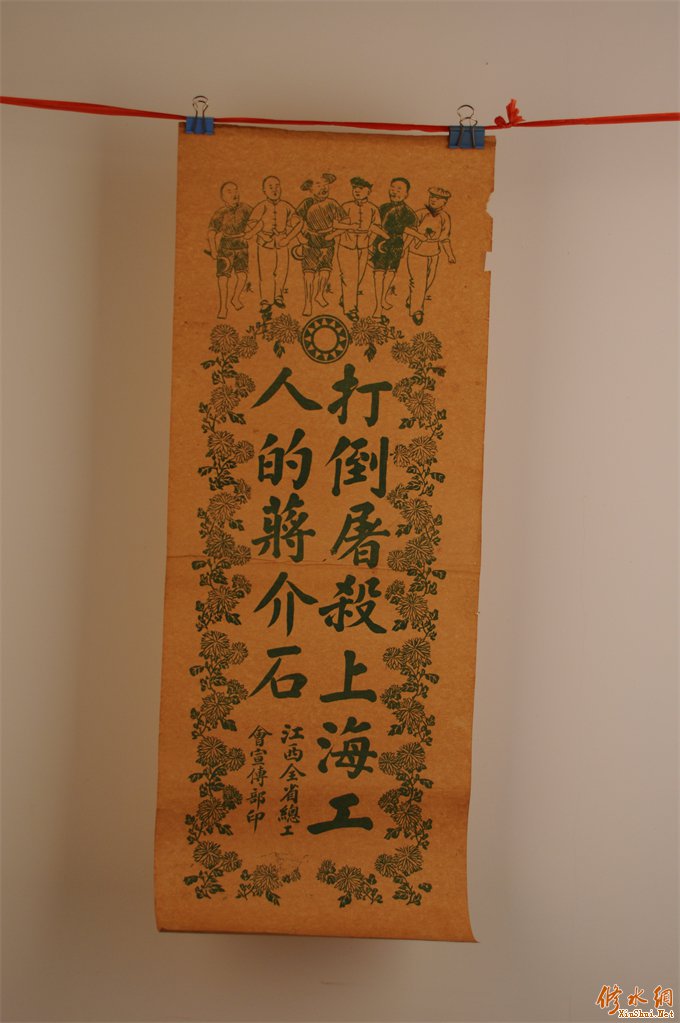 打倒屠殺上海工
人的蔣介石
江西全省總工
會宣傳部印
修水網
XiuShui.Net